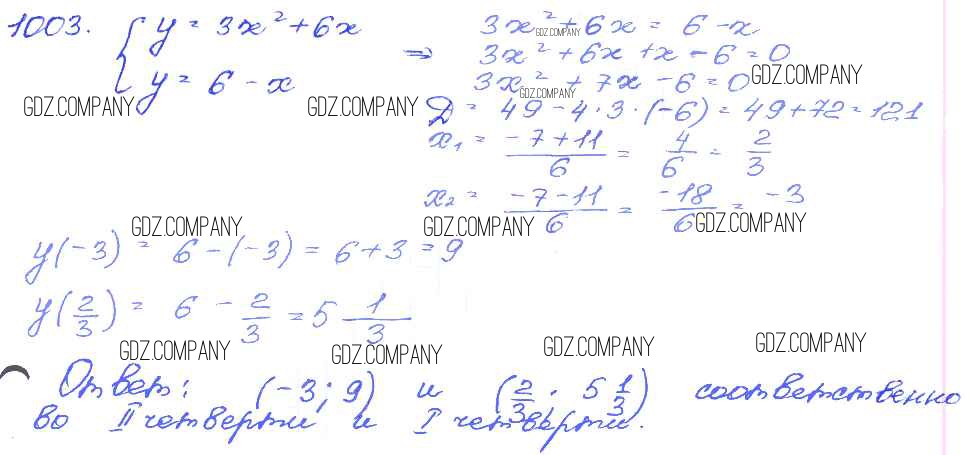 1003. { y = 3x² + 6x => 3x² + 6x = 6 - x
y = 6 - x 3x² + 6x + x - 6 = 0
3x² + 7x - 6 = 0
Д = 49 - 4 · 3 · (-6) = 49 + 72 = 121
x₁ = (-7 + 11)/6 = 4/6 = 2/3
x₂ = (-7 - 11)/6 = -18/6 = -3
y(-3) = 6 - (-3) = 6 + 3 = 9
y(2/3) = 6 - 2/3 = 5 1/3
Ответ: (-3; 9) и (2/3; 5 1/3) соответственно
во II четверти и I четверти.
GDZ.COMPANY
GDZ.COMPANY
GDZ.COMPANY
GDZ.COMPANY
GDZ.COMPANY
GDZ.COMPANY
GDZ.COMPANY
GDZ.COMPANY
GDZ.COMPANY
GDZ.COMPANY
GDZ.COMPANY
GDZ.COMPANY